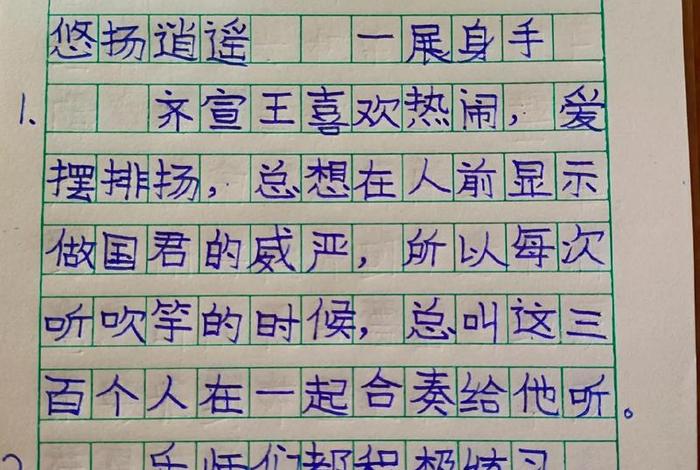 悠扬逍遥 一展身手
1. 齐宣王喜欢热闹，爱
摆排扬，总想在人前显示
做国君的威严，所以每次
听吹竽的时候，总叫这三
百个人在一起合奏给他听。
乐师们都积极练习